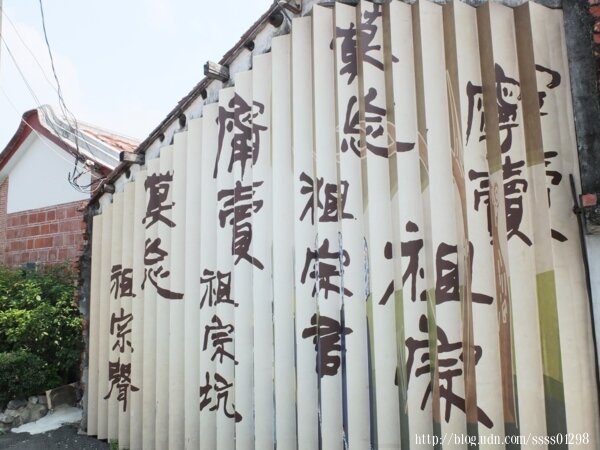 寧賣
祖宗
莫忘
祖宗言
寧賣
祖宗坑
莫忘
祖宗聲
http://blog.udn.com/ssss01298